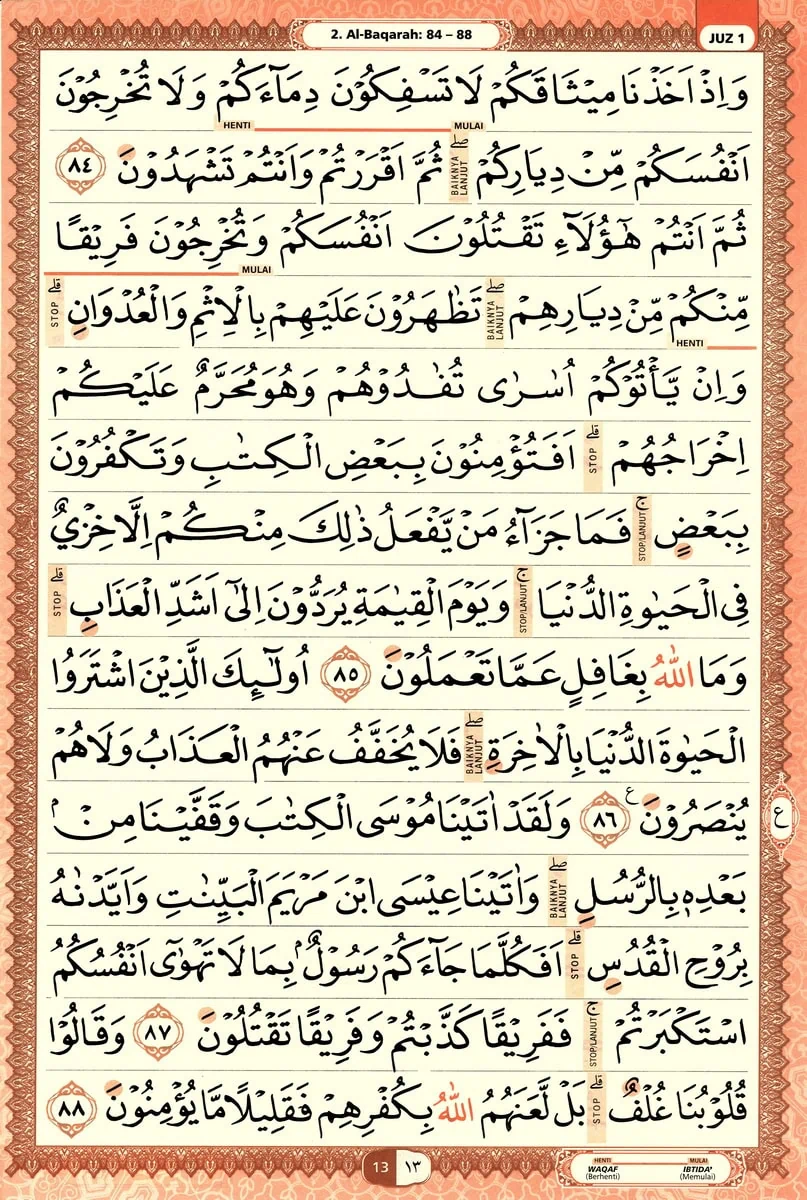 2. Al-Baqarah: 84 – 88
JUZ 1
وَاِذْ اَخَذْنَا مِيْثَاقَكُمْ لَا تَسْفِكُوْنَ دِمَاۤءَكُمْ وَلَا تُخْرِجُوْنَ
HENTI MULAI
اَنْفُسَكُمْ مِّنْ دِيَارِكُمْ ۖ BAIKNYA LANJUT ثُمَّ اَقْرَرْتُمْ وَاَنْتُمْ تَشْهَدُوْنَ ٨٤
ثُمَّ اَنْتُمْ هٰٓؤُلَاۤءِ تَقْتُلُوْنَ اَنْفُسَكُمْ وَتُخْرِجُوْنَ فَرِيْقًا
MULAI
مِّنْكُمْ مِّنْ دِيَارِهِمْ ۖ BAIKNYA LANJUT تَظٰهَرُوْنَ عَلَيْهِمْ بِالْاِثْمِ وَالْعُدْوَانِ ۗ STOP
HENTI
وَاِنْ يَّأْتُوْكُمْ اُسٰرٰى تُفٰدُوْهُمْ وَهُوَ مُحَرَّمٌ عَلَيْكُمْ
اِخْرَاجُهُمْ ۗ STOP اَفَتُؤْمِنُوْنَ بِبَعْضِ الْكِتٰبِ وَتَكْفُرُوْنَ
بِبَعْضٍ ۚ STOP/LANJUT فَمَا جَزَاۤءُ مَنْ يَّفْعَلُ ذٰلِكَ مِنْكُمْ اِلَّا خِزْيٌ
فِى الْحَيٰوةِ الدُّنْيَا ۚ STOP/LANJUT وَيَوْمَ الْقِيٰمَةِ يُرَدُّوْنَ اِلٰٓى اَشَدِّ الْعَذَابِ ۗ STOP
وَمَا اللّٰهُ بِغَافِلٍ عَمَّا تَعْمَلُوْنَ ٨٥ اُولٰۤىِٕكَ الَّذِيْنَ اشْتَرَوُا
الْحَيٰوةَ الدُّنْيَا بِالْاٰخِرَةِ ۖ BAIKNYA LANJUT فَلَا يُخَفَّفُ عَنْهُمُ الْعَذَابُ وَلَا هُمْ
يُنْصَرُوْنَ ࣖ ٨٦ وَلَقَدْ اٰتَيْنَا مُوْسَى الْكِتٰبَ وَقَفَّيْنَا مِنْۢ
ع
بَعْدِهٖ بِالرُّسُلِ ۖ BAIKNYA LANJUT وَاٰتَيْنَا عِيْسَى ابْنَ مَرْيَمَ الْبَيِّنٰتِ وَاَيَّدْنٰهُ
بِرُوْحِ الْقُدُسِ ۗ STOP اَفَكُلَّمَا جَاۤءَكُمْ رَسُوْلٌۢ بِمَا لَا تَهْوٰٓى اَنْفُسُكُمُ
اسْتَكْبَرْتُمْ ۚ STOP/LANJUT فَفَرِيْقًا كَذَّبْتُمْ وَفَرِيْقًا تَقْتُلُوْنَ ٨٧ وَقَالُوْا
قُلُوْبُنَا غُلْفٌ ۗ STOP بَلْ لَّعَنَهُمُ اللّٰهُ بِكُفْرِهِمْ فَقَلِيْلًا مَّا يُؤْمِنُوْنَ ٨٨
13 ١٣
HENTI MULAI
WAQAF IBTIDA'
(Berhenti) (Memulai)